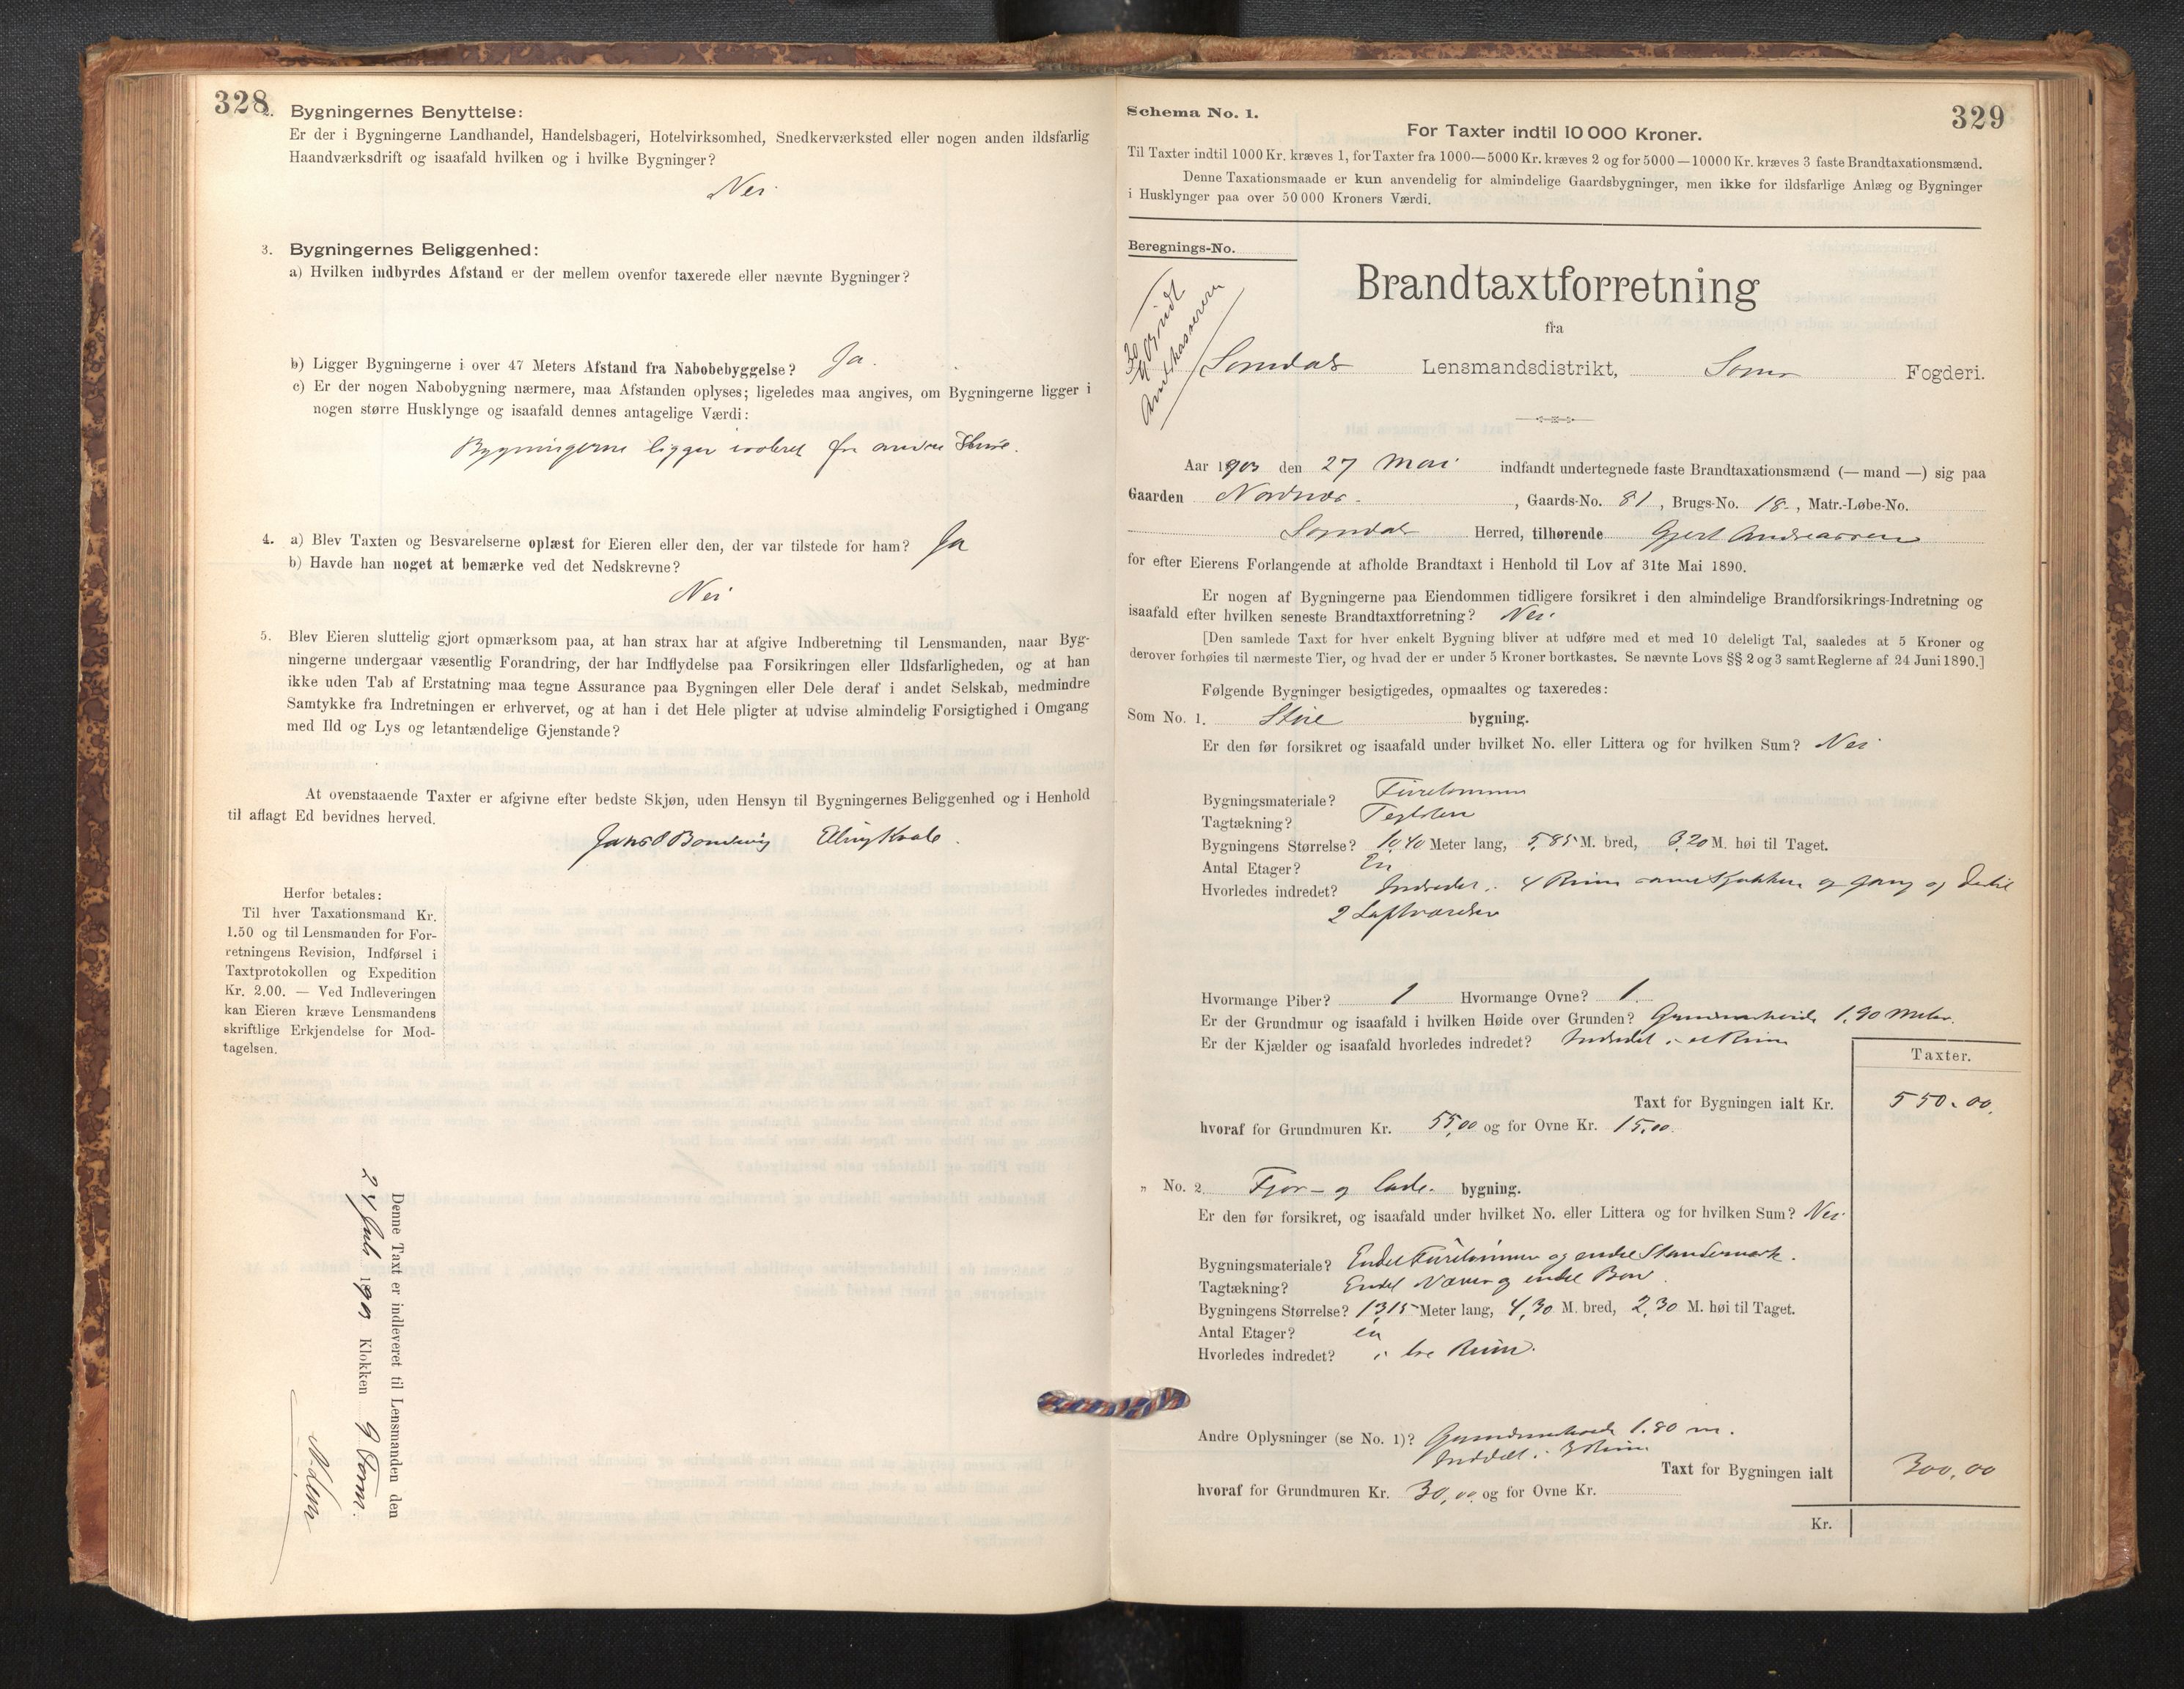 328
2. Bygningernes Benyttelse:
Er der i Bygningerne Landhandel, Handelsbageri, Hotelvirksomhed, Snedkerværksted eller nogen anden ildsfarlig
Haandværksdrift og isaafald hvilken og i hvilke Bygninger?
Nei
3. Bygningernes Beliggenhed:
a) Hvilken indbyrdes Afstand er der mellem ovenfor taxerede eller nævnte Bygninger?
b) Ligger Bygningerne i over 47 Meters Afstand fra Nabobebyggelse? Ja.
c) Er der nogen Nabobygning nærmere, maa Afstanden oplyses; ligeledes maa angives, om Bygningerne ligger i
nogen større Husklynge og isaafald dennes antagelige Værdi:
Bygningerne ligger isoleret fra andre Huse.
4. a) Blev Taxten og Besvarelserne oplæst for Eieren eller den, der var tilstede for ham? Ja
b) Havde han noget at bemærke ved det Nedskrevne?
Nei
5. Blev Eieren sluttelig gjort opmærksom paa, at han strax har at afgive Indberetning til Lensmanden, naar Byg-
ningerne undergaar væsentlig Forandring, der har Indflydelse paa Forsikringen eller Ildsfarligheden, og at han
ikke uden Tab af Erstatning maa tegne Assurance paa Bygningen eller Dele deraf i andet Selskab, medmindre
Samtykke fra Indretningen er erhvervet, og at han i det Hele pligter at udvise almindelig Forsigtighed i Omgang
med Ild og Lys og letantændelige Gjenstande?
At ovenstaaende Taxter er afgivne efter bedste Skjøn, uden Hensyn til Bygningernes Beliggenhed og i Henhold
til aflagt Ed bevidnes herved.
Elling Kvale.
Herfor betales:
Til hver Taxationsmand Kr.
1.50 og til Lensmanden for For-
retningens Revision, Indførsel i
Taxtprotokollen og Expedition
Kr. 2.00. — Ved Indleveringen
kan Eieren kræve Lensmandens
skriftlige Erkjendelse for Mod-
tagelsen.
Denne Taxt er indleveret til Lensmanden den
24 Juli 1903 Klokken 9 Form.
329
Schema No. 1.
For Taxter indtil 10 000 Kroner.
Til Taxter indtil 1000 Kr. kræves 1, for Taxter fra 1000—5000 Kr. kræves 2 og for 5000—10000 Kr. kræves 3 faste Brandtaxationsmænd.
Denne Taxationsmaade er kun anvendelig for almindelige Gaardsbygninger, men ikke for ildsfarlige Anlæg og Bygninger
i Husklynger paa over 50 000 Kroners Værdi.
Beregnings-No.
Brandtaxtforretning
fra
Sogndals Lensmandsdistrikt, Sogns Fogderi.
Aar 1903 den 27 Mai indfandt undertegnede faste Brandtaxationsmænd (— mand —) sig paa
Gaarden Nordnæs., Gaards-No. 81, Brugs-No. 18., Matr.-Løbe-No.
Sogndals Herred, tilhørende Gjert Andreassen
for efter Eierens Forlangende at afholde Brandtaxt i Henhold til Lov af 31te Mai 1890.
Er nogen af Bygningerne paa Eiendommen tidligere forsikret i den almindelige Brandforsikrings-Indretning og
isaafald efter hvilken seneste Brandtaxtforretning? Nei.
[Den samlede Taxt for hver enkelt Bygning bliver at udføre med et med 10 deleligt Tal, saaledes at 5 Kroner og
derover forhøies til nærmeste Tier, og hvad der er under 5 Kroner bortkastes. Se nævnte Lovs §§ 2 og 3 samt Reglerne af 24 Juni 1890.]
Følgende Bygninger besigtigedes, opmaaltes og taxeredes:
Som No. 1. Stue bygning.
Er den før forsikret og isaafald under hvilket No. eller Littera og for hvilken Sum? Nei
Bygningsmateriale? Furetømmer
Tagtækning? Teglsten
Bygningens Størrelse? 10,40 Meter lang, 5,85 M. bred, 3,20 M. høi til Taget.
Antal Etager? En
Hvorledes indredet? Indredet i 4 Rum samt Kjøkken og Gang og dertil
2 Loftværelser
Hvormange Piber? 1 Hvormange Ovne? 1.
Er der Grundmur og isaafald i hvilken Høide over Grunden? Grundmurhøide 1,90 Meter.
Er der Kjælder og isaafald hvorledes indredet? Indredet i et Rum
Taxter.
Taxt for Bygningen ialt Kr. 550.00.
hvoraf for Grundmuren Kr. 55,00 og for Ovne Kr. 15,00.
„ No. 2. Fjøs- og Lade- bygning.
Er den før forsikret, og isaafald under hvilket No. eller Littera og for hvilken Sum? Nei
Bygningsmateriale? Endel Furetømmer og endel Standerverk.
Tagtækning? Endel Næver og endel Bord
Bygningens Størrelse? 13,15 Meter lang, 4,30 M. bred, 2,30 M. høi til Taget.
Antal Etager? en
Hvorledes indredet? i tre Rum.
Andre Oplysninger (se No. 1)? Grundmurhøide 1.80 m.
Inddelt i 3 Rum
Taxt for Bygningen ialt 300,00
hvoraf for Grundmuren Kr. 30,00 og for Ovne Kr.
Kr.